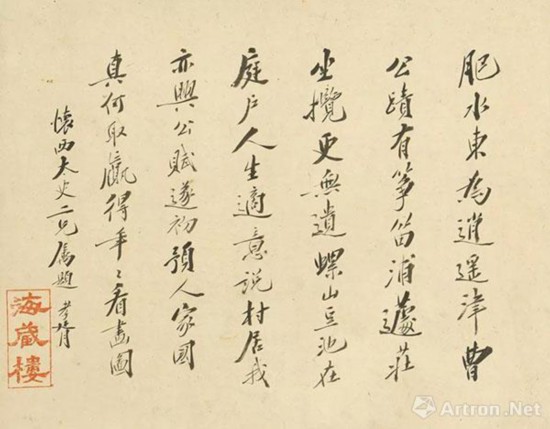 肥水東爲逍遥津曹
公蹟有箏笛浦蘧莊
坐攬更無遺螺山豆池在
庭戶人生適意説村居我
亦興公賦遂初預人家國
真何取贏得年〻看畫圖
懷西太史二兄屬題 孝胥
海藏樓
Artron.Net